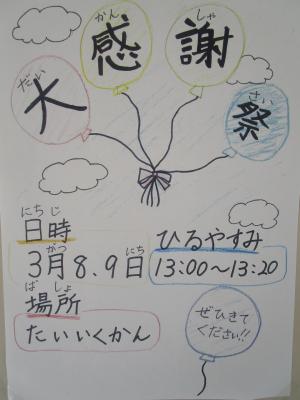 だい かん しゃ さい
大感謝祭
にちじ
日時
ひるやすみ
がつ にち
3月8.9日
13:00〜13:20
ばしょ
場所
たいいくかん
ぜひきて
ください!!